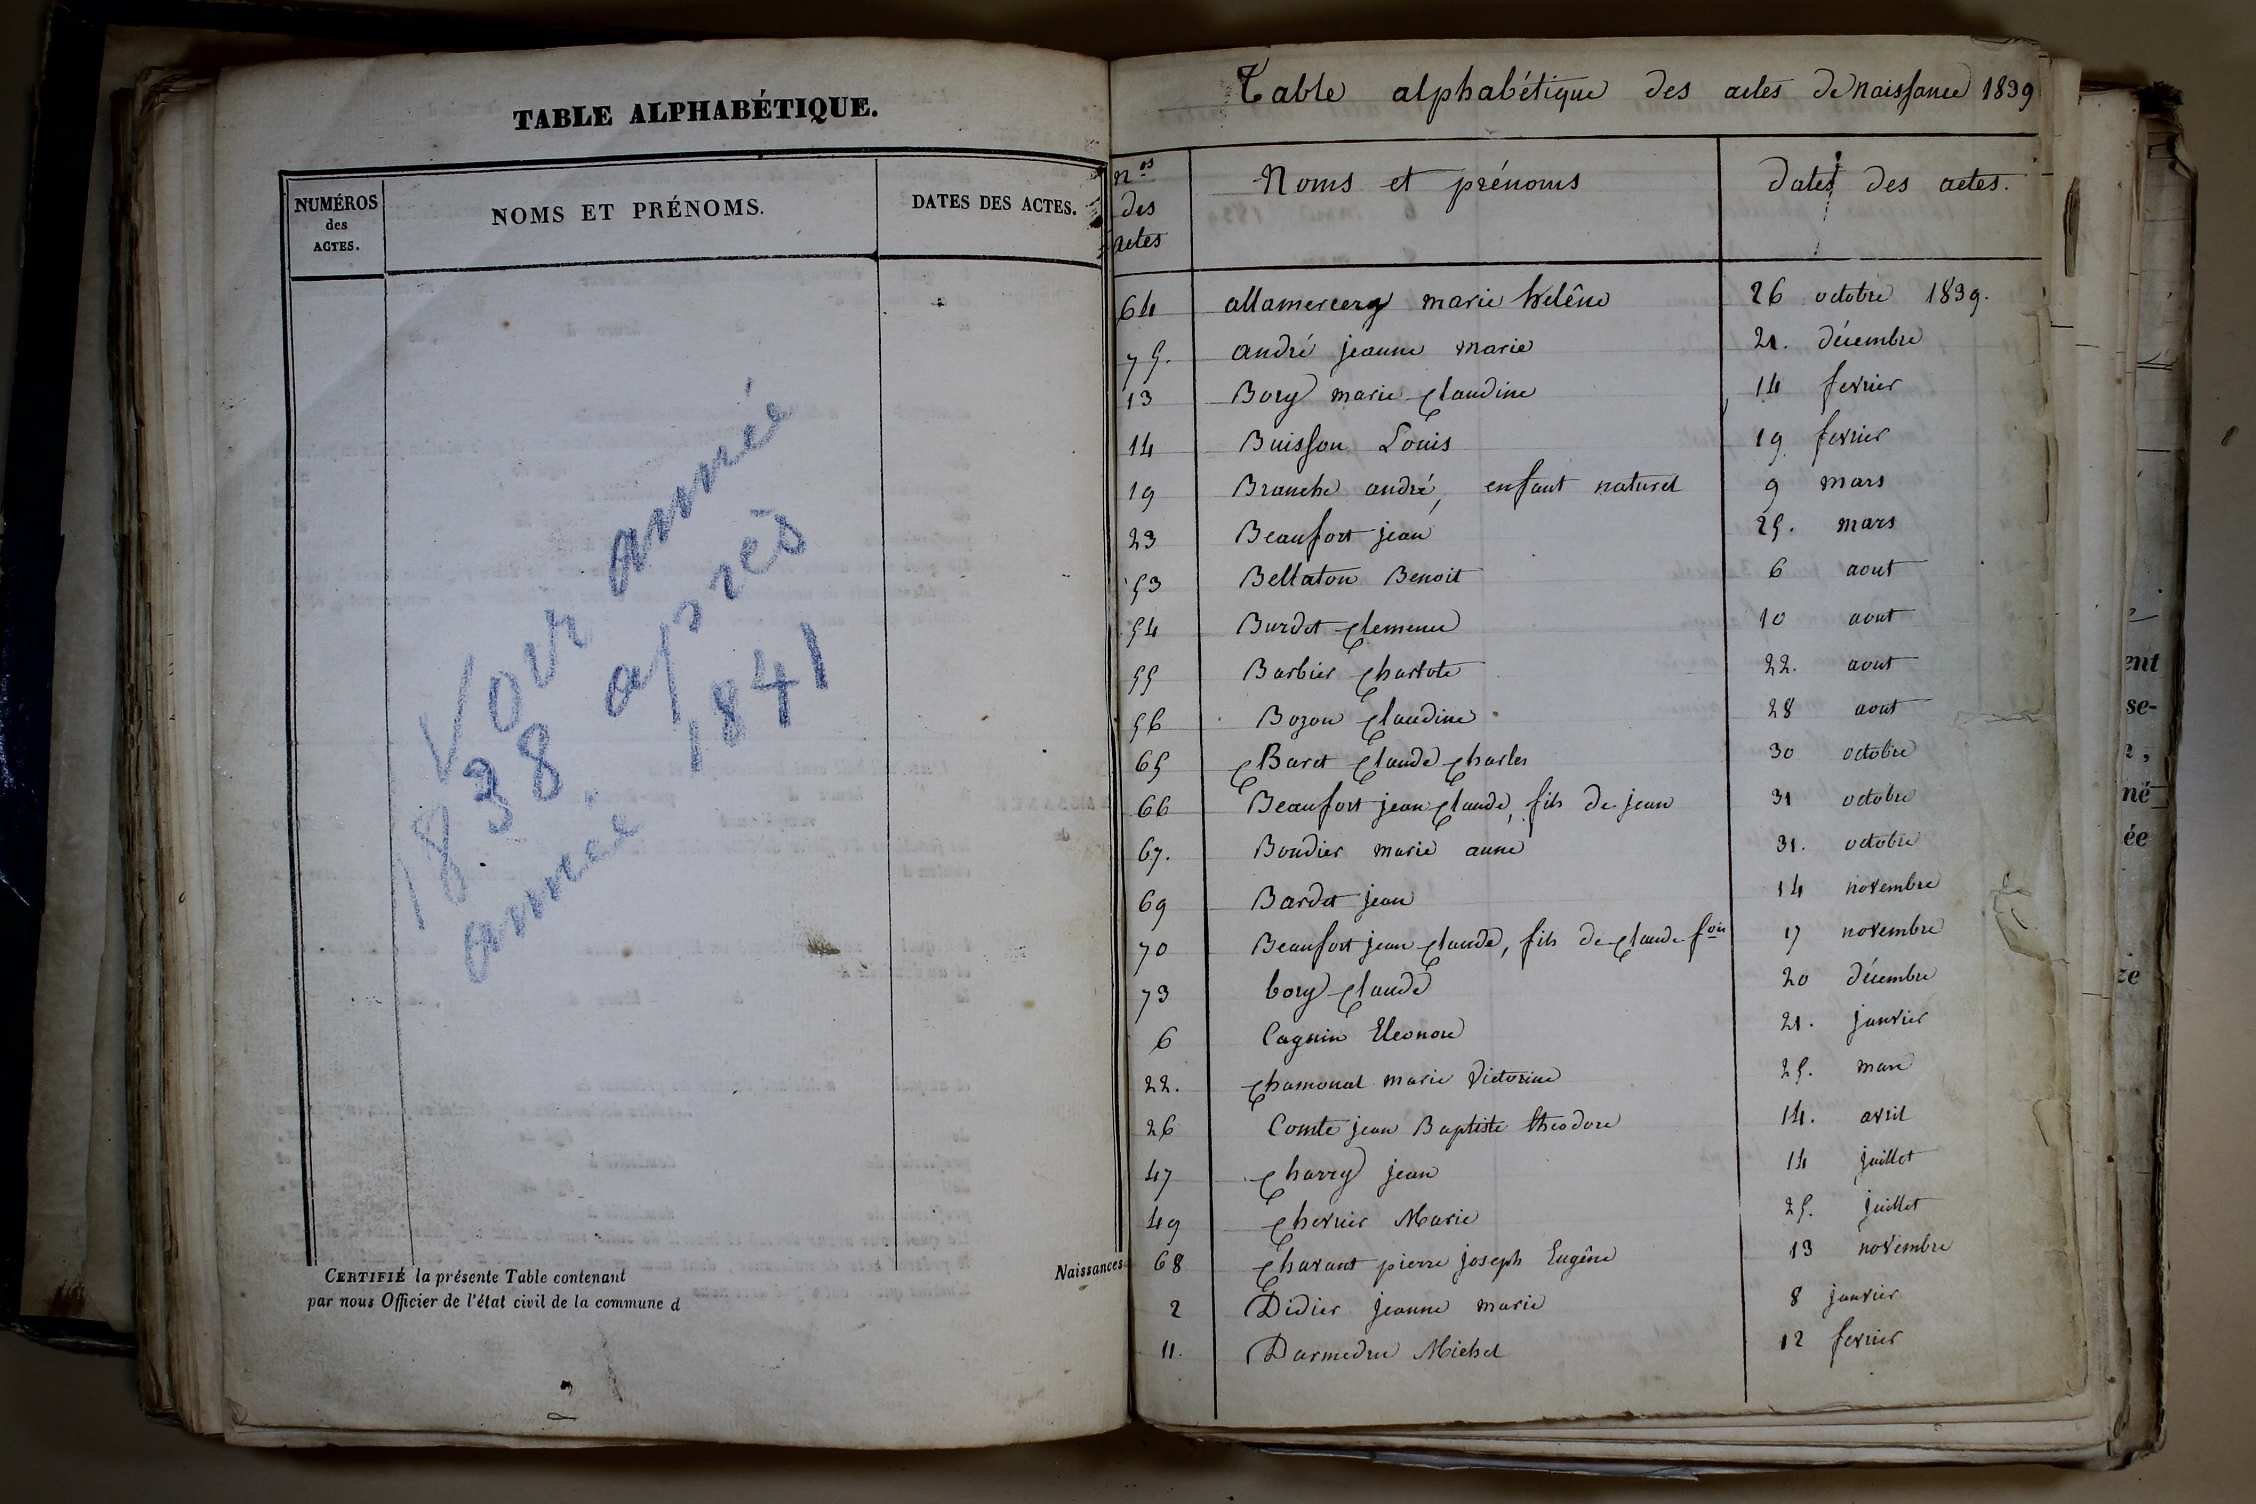 TABLE ALPHABÉTIQUE.
NUMÉROS
des
ACTES.
NOMS ET PRÉNOMS.
DATES DES ACTES.
Voir année
1838 après
année 1841
CERTIFIÉ la présente Table contenant
Naissances
par nous Officier de l'état civil de la commune d
Table alphabétique des actes de Naissance 1839
nos
des
actes
Noms et prénoms
dates des actes.
64 allamercery marie helêne 26 octobre 1839.
75. andré jeanne marie 21. décembre
13 Bory marie claudine 14 fevrier
14 Buisson Louis 19 fevrier
19 Branche andré, enfant naturel 9 mars
23 Beaufort jean 25. mars
53 Bellaton Benoit 6 aout
54 Burdet clemence 10 aout
55 Barbier charlote 22. aout
56 Bozon claudine 28 aout
65 Baret claude charles 30 octobre
66 Beaufort jean claude, fils de jean 31 octobre
67. Boudier marie anne 31. octobre
69 Bardet jean 14 novembre
70 Beaufort jean claude, fils de claude fois 17 novembre
73 bory claude 20 décembre
6 Cagnin Eleonore 21. janvier
22. chamonal marie Victorine 25. mars
26 Comte jean Baptiste theodore 14. avril
47 charry jean 14 juillet
49 chevrier Marie 25. juillet
68 charant pierre joseph Eugêne 13 novembre
2 Didier jeanne marie 8 janvier
11. Darmedru Michel 12 fevrier
ent
se-
né
ée